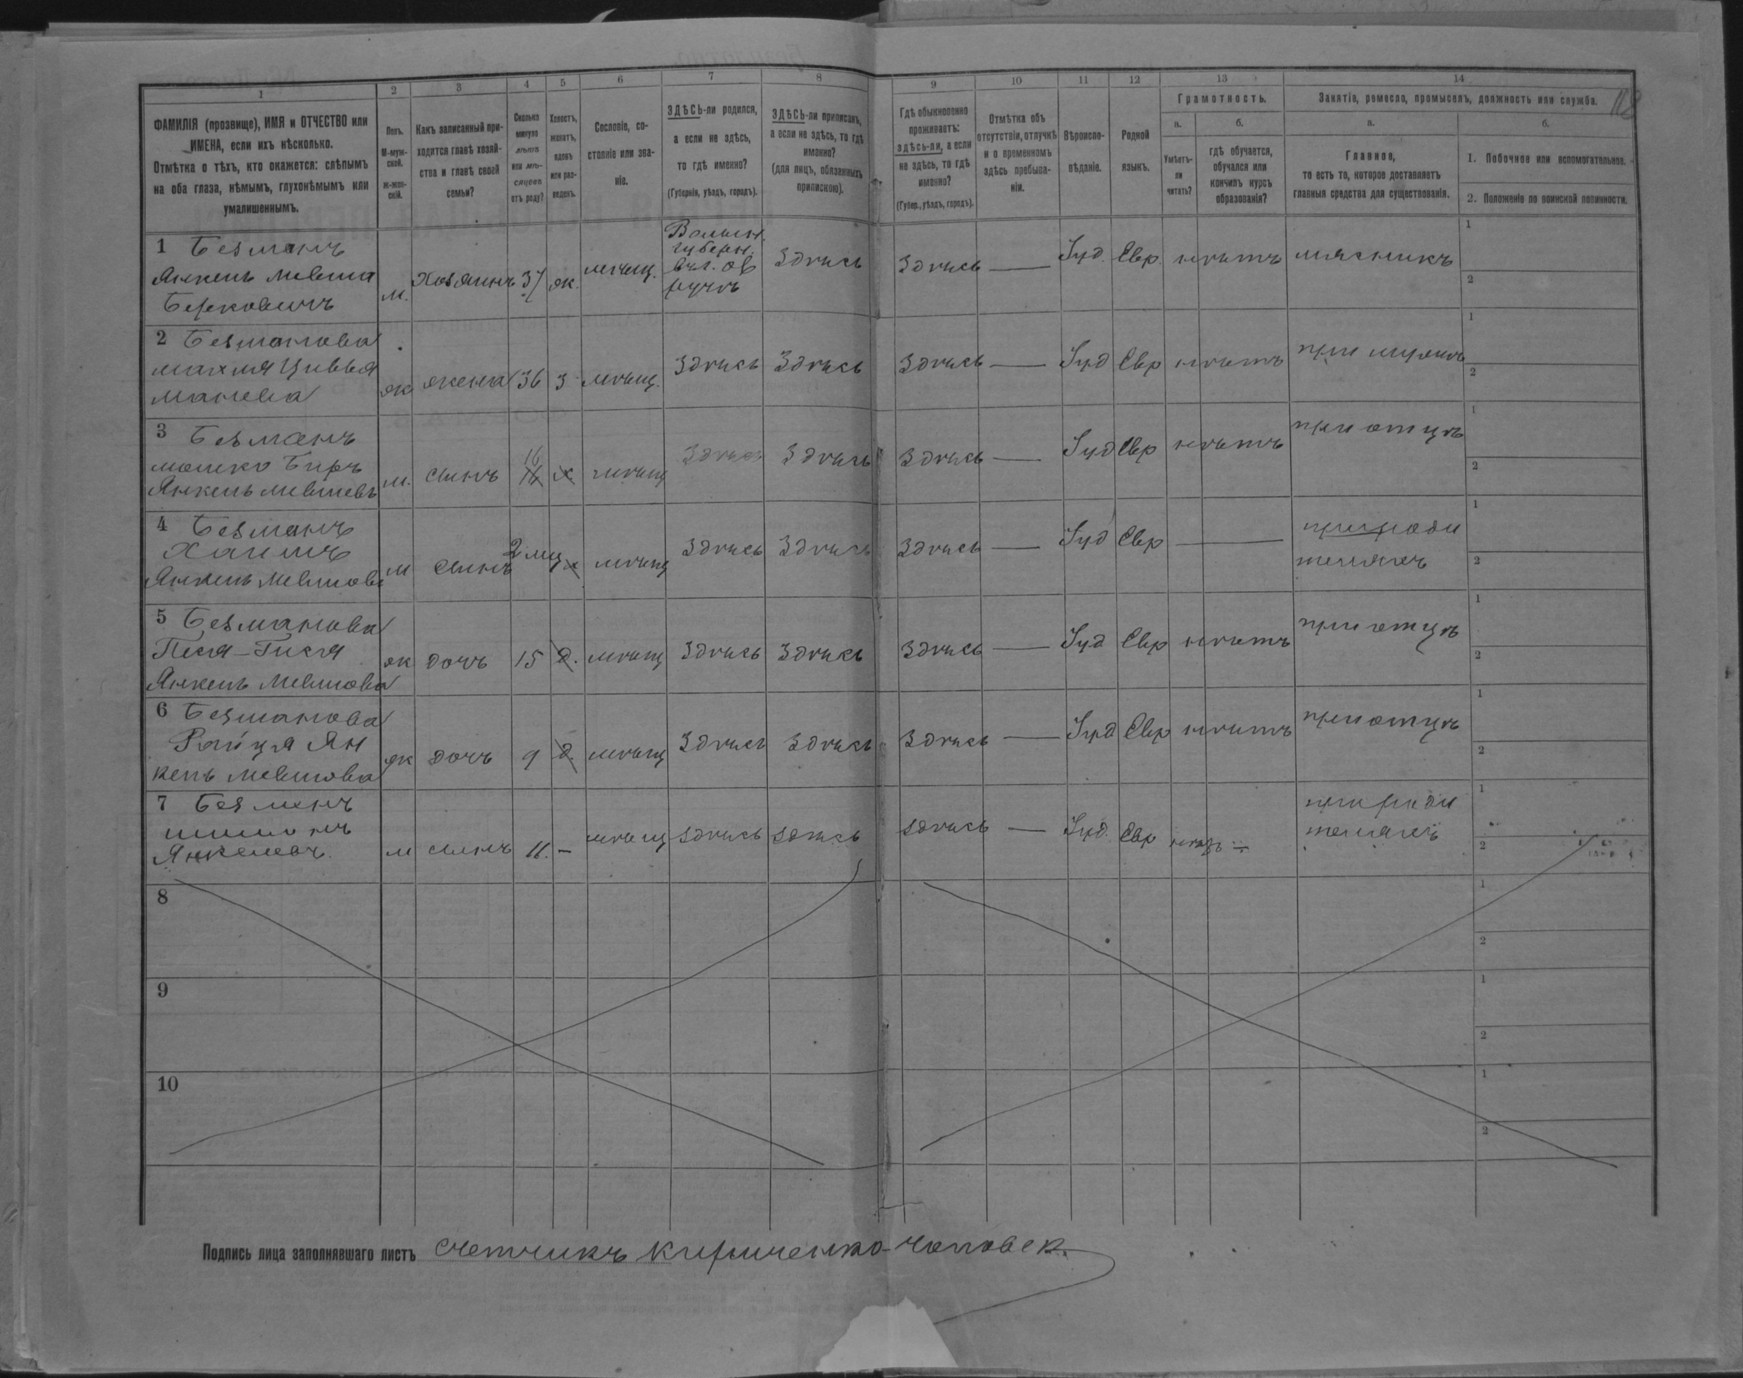 1 2 3 4 5 6 7 8 9 10 11 12 13 14
ФАМИЛІЯ (прозвище), ИМЯ и ОТЧЕСТВО или
ИМЕНА, если ихъ нѣсколько.
Отмѣтка о тѣхъ, кто окажется: слѣпымъ
на оба глаза, нѣмымъ, глухонѣмымъ или
умалишеннымъ.
Полъ.
М-муж-
ской.
Ж-жен-
скій.
Какъ записанный при-
ходится главѣ хозяй-
ства и главѣ своей
семьи?
Сколько
минуло
лѣтъ
или мѣ-
сяцевъ
отъ роду?
Холостъ,
женатъ,
вдовъ
или раз-
веденъ.
Сословіе, со-
стояніе или зва-
ніе.
ЗДѢСЬ-ли родился,
а если не здѣсь,
то гдѣ именно?
(Губернія, уѣздъ, городъ).
ЗДѢСЬ-ли приписанъ,
а если не здѣсь, то гдѣ
именно?
(для лицъ, обязанныхъ
припискою).
Гдѣ обыкновенно
проживаетъ:
здѣсь-ли, а если
не здѣсь, то гдѣ
именно?
(Губер., уѣздъ, городъ).
Отмѣтка объ
отсутствіи, отлучкѣ
и о временномъ
здѣсь пребыва-
ніи.
Вѣроиспо-
вѣданіе.
Родной
языкъ.
Грамотность.
а.
Умѣетъ-
ли
читать?
б.
гдѣ обучается,
обучался или
кончилъ курсъ
образованія?
Занятіе, ремесло, промыселъ, должность или служба.
а.
Главное,
то есть то, которое доставляетъ
главныя средства для существованія.
б.
1. Побочное или вспомогательное.
2. Положеніе по воинской повинности.
1 Безманъ
Янкель Мевша
Берковичъ
м. Хозяинъ 37 ж. мѣщ.
Волын.
губерн.
Здѣсь Здѣсь — Іуд. Евр. нѣтъ мясникъ
1
2
2 Безманова
Цивья
ж жена 36 з мѣщ. Здѣсь Здѣсь Здѣсь — Іуд Евр нѣтъ при мужѣ
1
2
3 Безманъ
Мошко Беръ
м. сынъ 16 х мѣщ Здѣсь Здѣсь Здѣсь — Іуд Евр нѣтъ при отцѣ
1
2
4 Безманъ
Хаимъ
м сынъ 2 мѣц х мѣщ Здѣсь Здѣсь Здѣсь — Іуд Евр — при роди
теляхъ
1
2
5 Безманова
Песя-Гися
Янкель Мевшова
ж дочь 15 д. мѣщ Здѣсь Здѣсь Здѣсь — Іуд Евр нѣтъ при отцѣ
1
2
6 Безманова
Райця Ян
кель Мевшова
ж дочь 9 д. мѣщ Здѣсь Здѣсь Здѣсь — Іуд Евр нѣтъ при отцѣ
1
2
7 Безманъ
Янкелевъ.
м сынъ 11. — мѣщ Здѣсь Здѣсь Здѣсь — Іуд. Евр нѣтъ — при роди
теляхъ
1
2
8
1
2
9
1
2
10
1
2
Подпись лица заполнявшаго листъ Счетчикъ Кириченко-Чоловек.